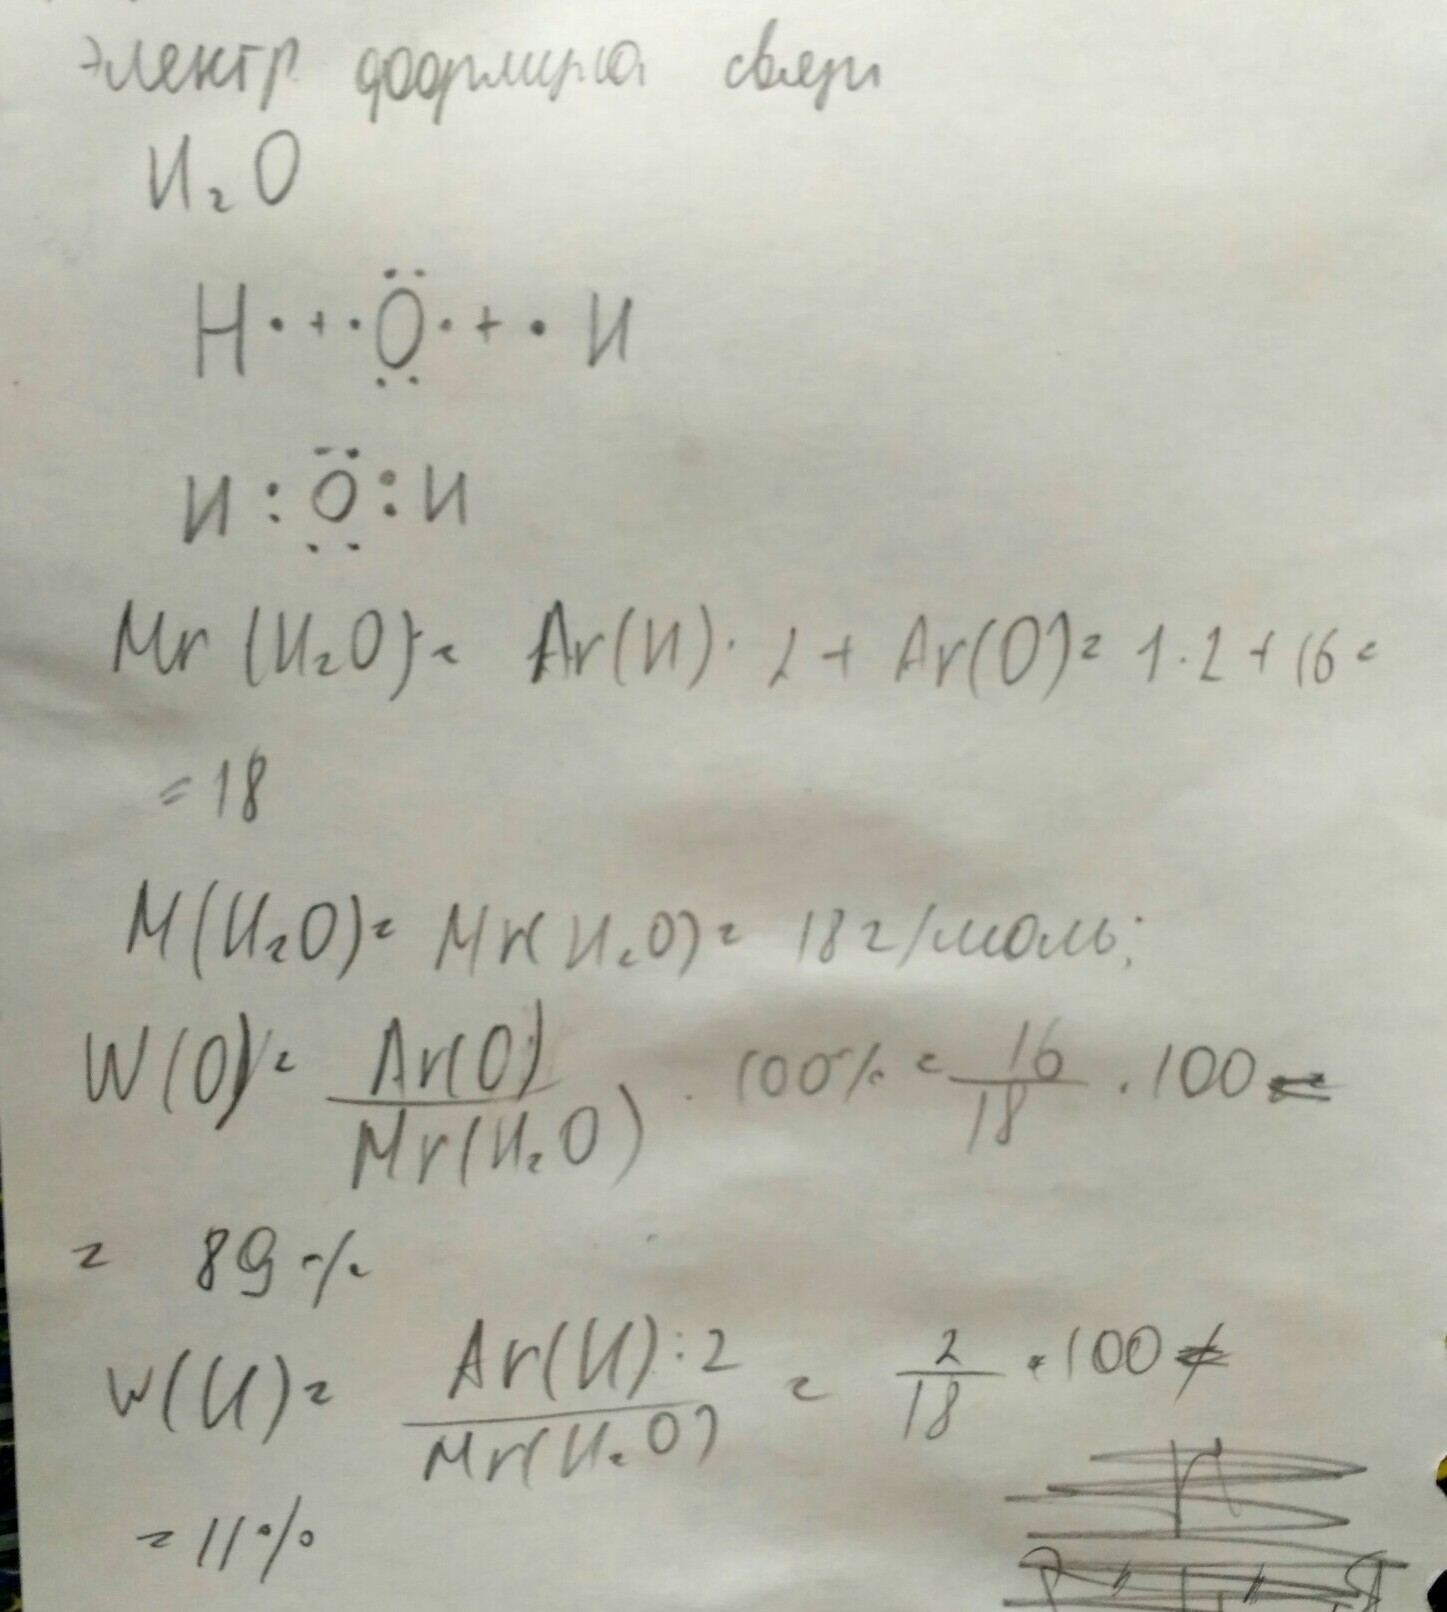 Электр формула связи
H₂O
H· + ·Ö· + · H
H : Ö : H
Mr (H₂O) = Ar(H) · 2 + Ar(O) = 1 · 2 + 16 =
= 18
M(H₂O) = Mr(H₂O) = 18 г/моль;
W(O) = Ar(O) / Mr(H₂O) · 100% = 16 / 18 · 100 =
= 89 %
W(H) = Ar(H) : 2 / Mr(H₂O) = 2 / 18 · 100 =
= 11 %